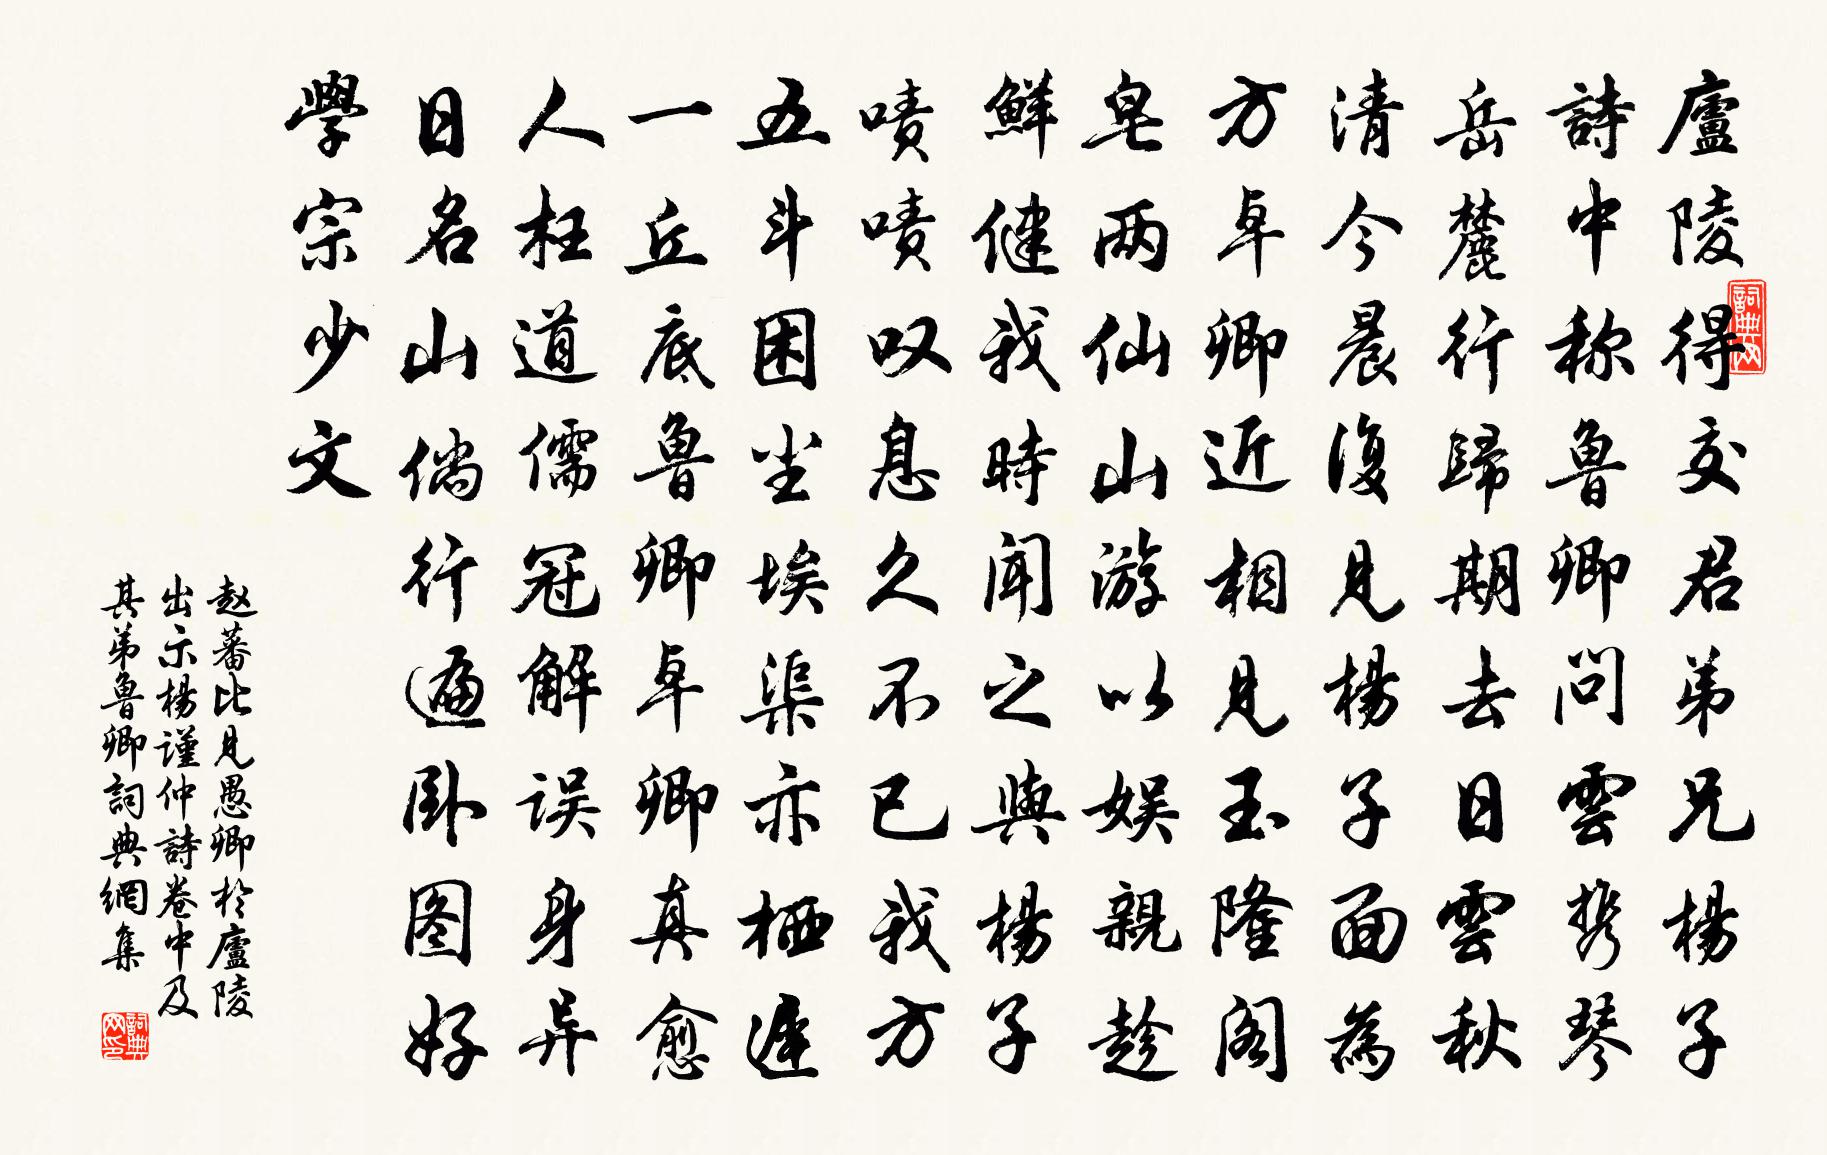 廬陵得交君弟兄楊子
詩中称魯卿問雲携琴
岳麓行歸期去日雲秋
清今晨復見楊子面為
方卓卿近相見玉隆閣
皂两仙山游以娱親趁
鮮健我時闻之與楊子
嘖嘖叹息久不已我方
五斗困尘埃渠亦栖遲
一丘底魯卿卓卿真愈
人枉道儒冠解误身异
日名山倘行遍卧图好
學宗少文
赵蕃比見愚卿於廬陵
出示楊谨仲詩卷中及
其弟魯卿詞典網集
詞典网
詞典网印